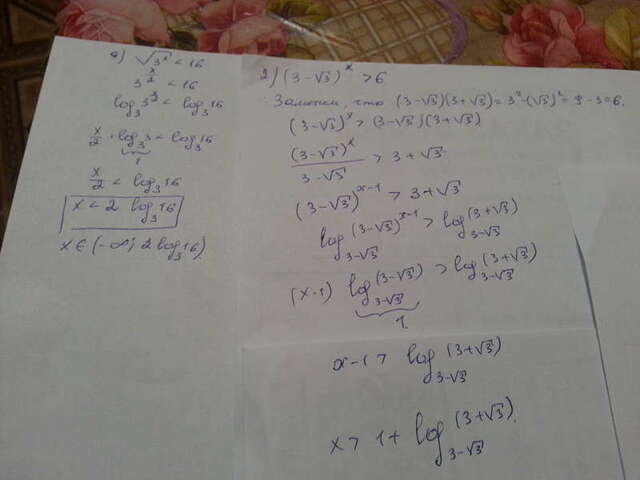 а) √3^x < 16
3^(x/2) < 16
log₃ 3^(x/2) < log₃ 16
x/2 · log₃ 3 < log₃ 16
1
x/2 < log₃ 16
x < 2 log₃ 16
x ∈ (-∞; 2 log₃ 16)
2) (3-√3)^x > 6
Заметим, что (3-√3)(3+√3) = 3² - (√3)² = 9 - 3 = 6.
(3-√3)^x > (3-√3)(3+√3)
(3-√3)^x / (3-√3) > 3+√3
(3-√3)^(x-1) > 3+√3
log_(3-√3) (3-√3)^(x-1) > log_(3-√3) (3+√3)
(x-1) log_(3-√3) (3-√3) > log_(3-√3) (3+√3)
1
x-1 > log_(3-√3) (3+√3)
x > 1 + log_(3-√3) (3+√3).